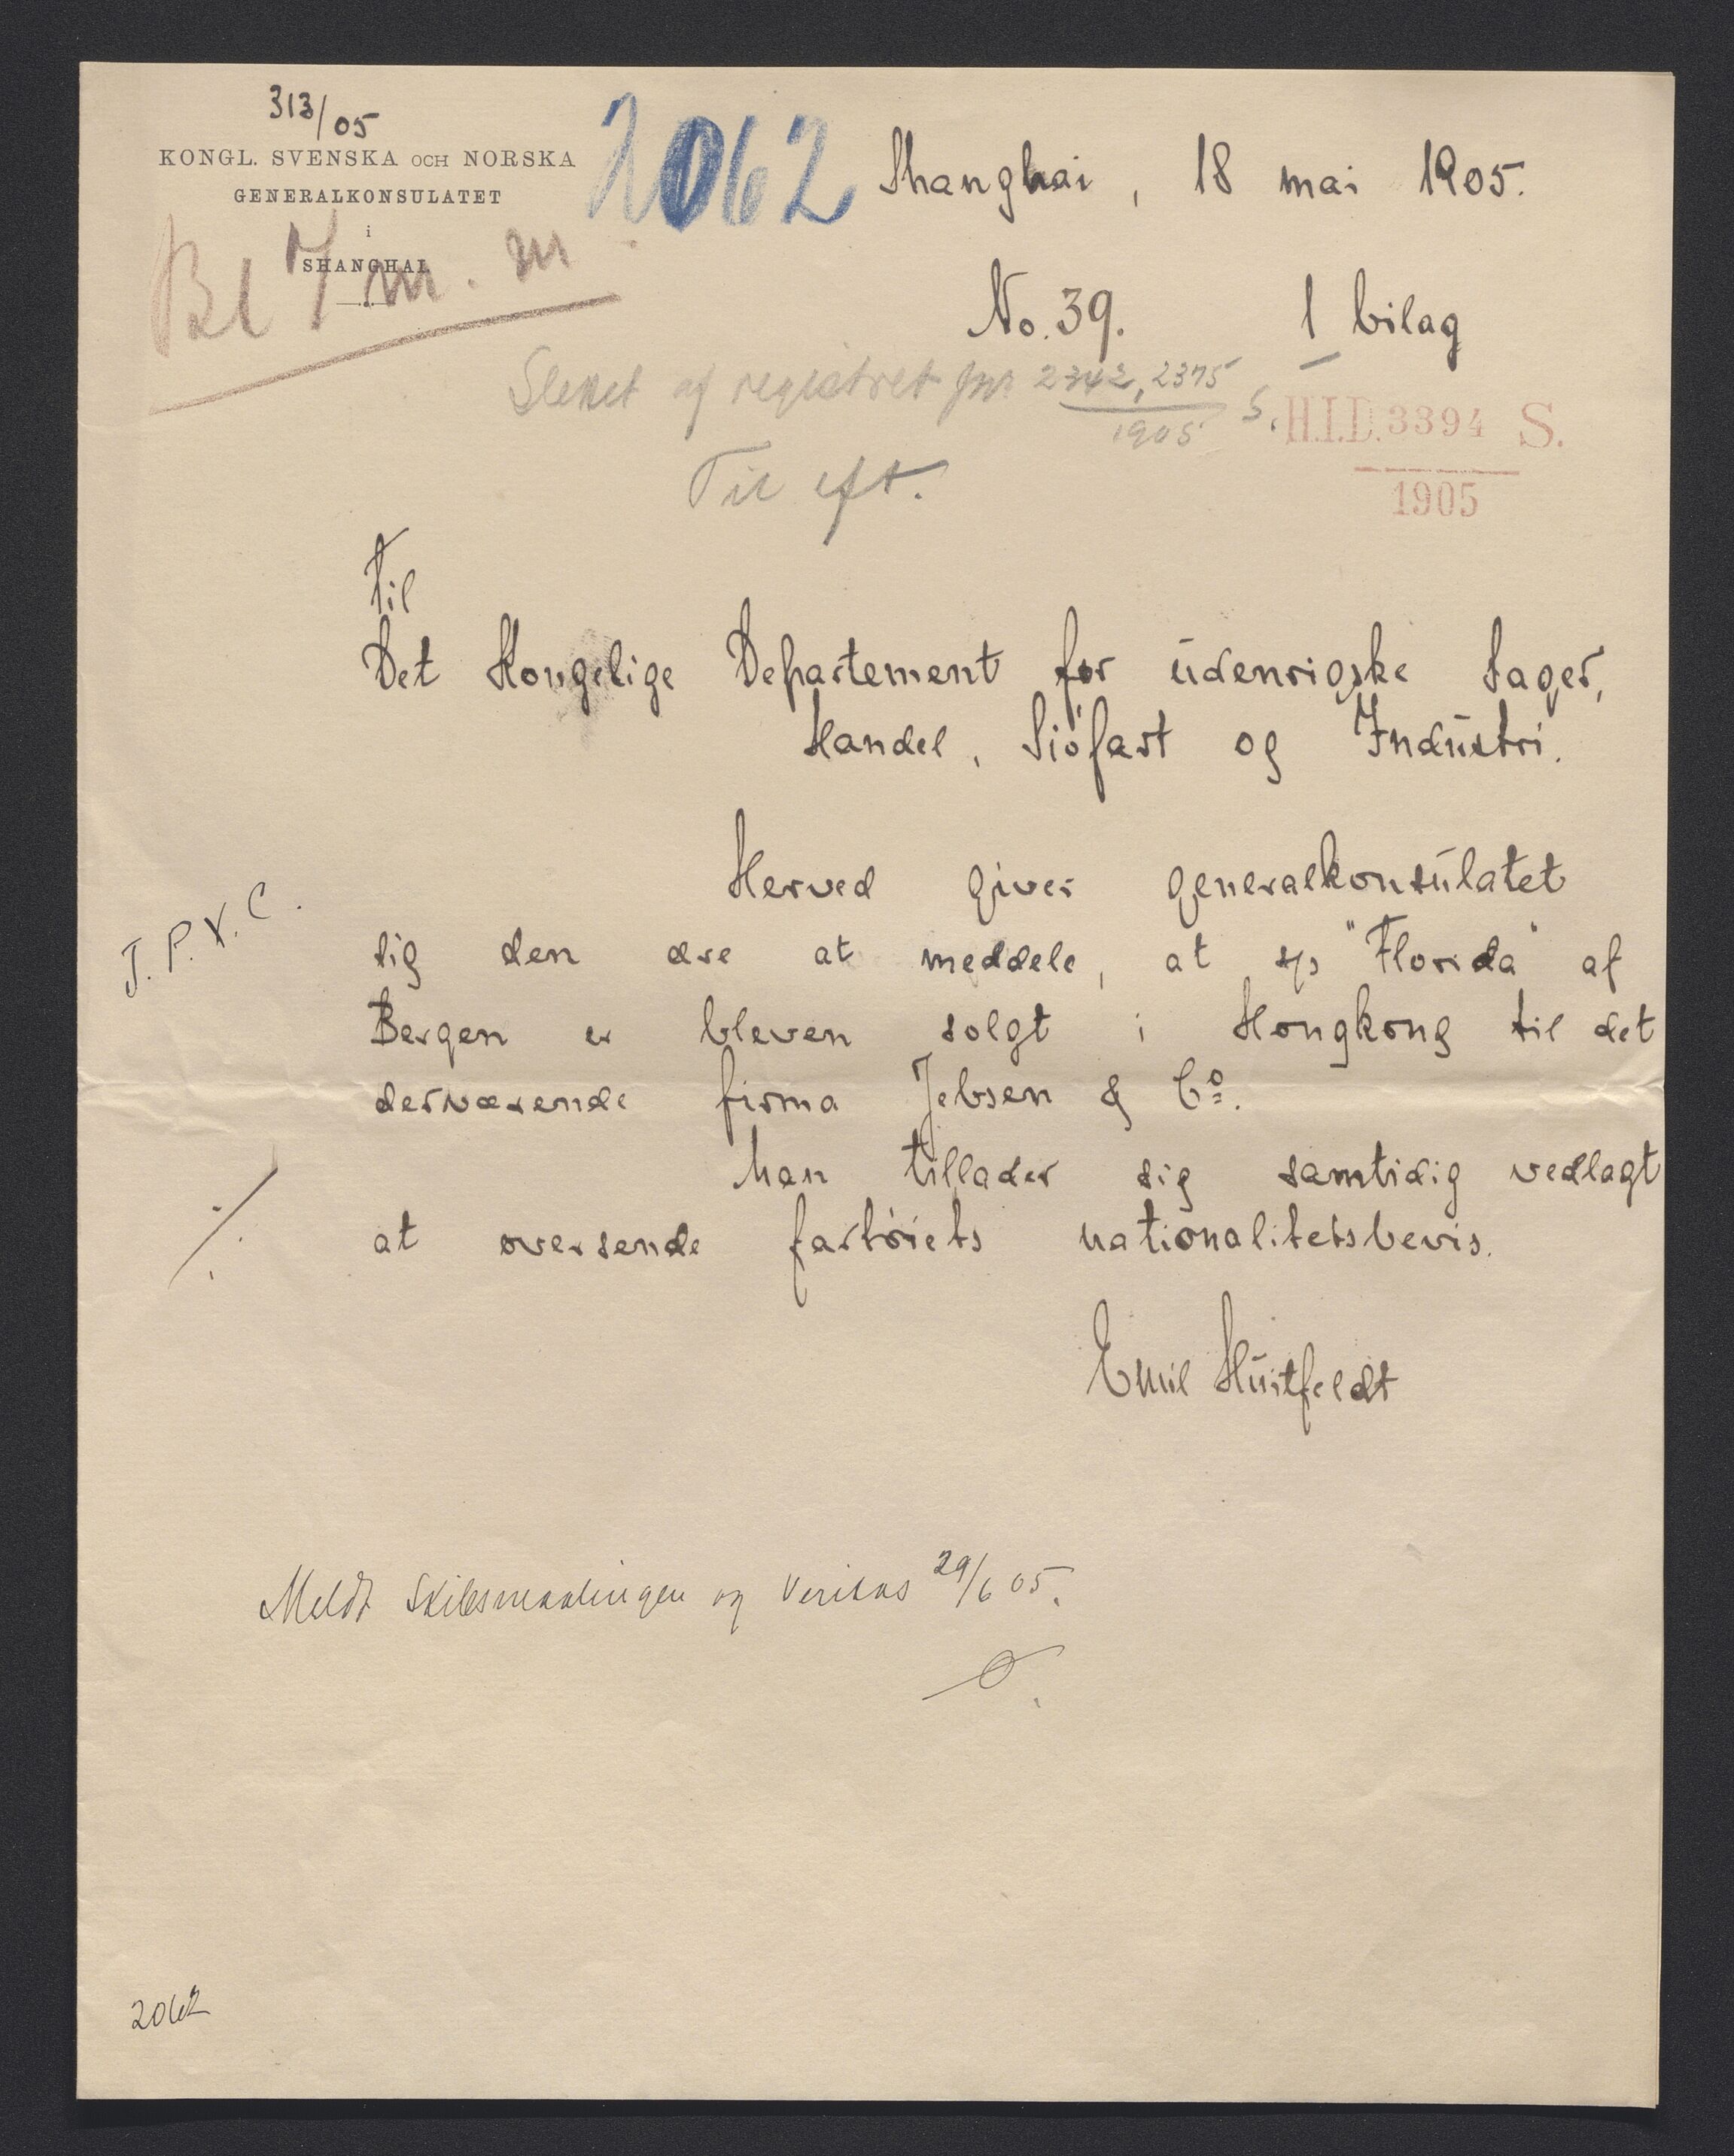 313/05
KONGL. SVENSKA OCH NORSKA
GENERALKONSULATET
i
SHANGHAI.
2062
Shanghai, 18 mai 1905.
No. 39. 1 bilag
Slettet af registret jnr 2342, 2375 S.
1905
H.I.D. 3394 S.
1905
Til eft.
Til
Det Kongelige Departement for udenrigske Sager,
Handel, Siøfart og Industri.
Herved giver generalkonsulatet
J. P. & C.
sig den ære at meddele, at s/s "Florida" af
Bergen er bleven solgt i Hongkong til det
derværende firma Jebsen & Co.
Man tillader sig samtidig vedlagt
at oversende fartøiets nationalitetsbevis.
Emil Huitfeldt
Meldt Skibsmaalingen og Veritas 29/6 05.
2062